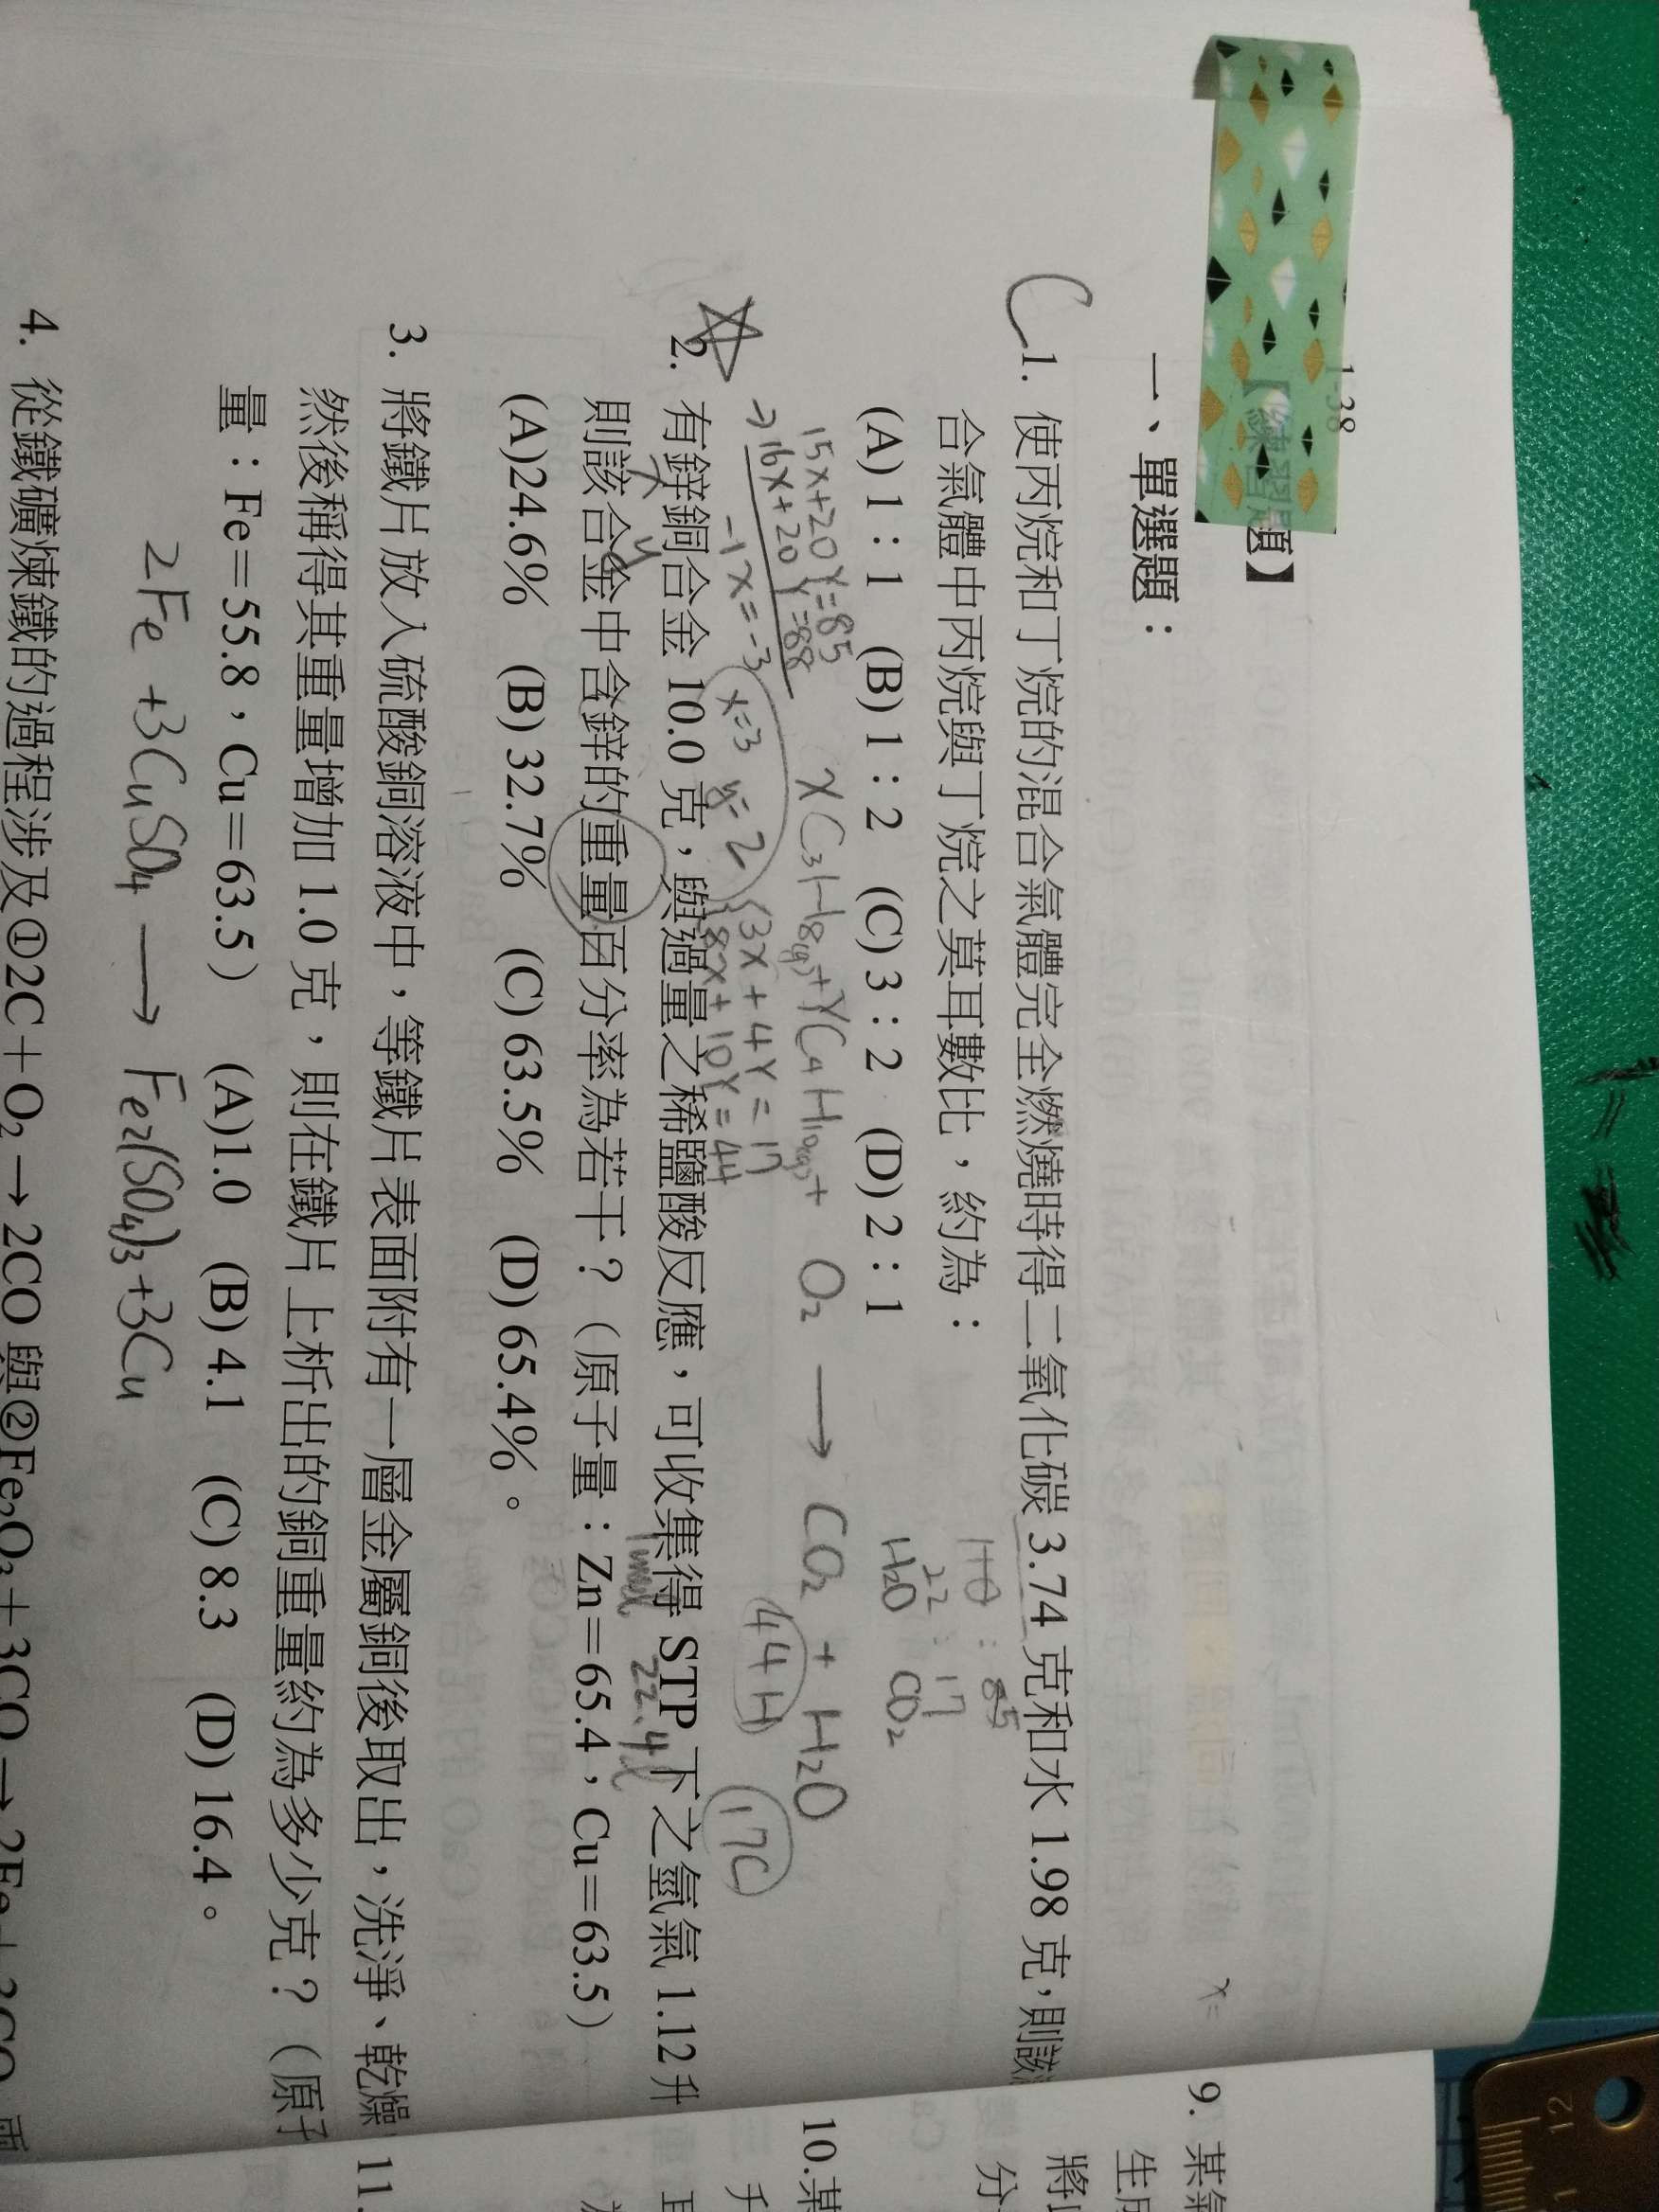 1-38
【練習題】
一、單選題：
C 1. 使丙烷和丁烷的混合氣體完全燃燒時得二氧化碳 3.74 克和水 1.98 克，則該
合氣體中丙烷與丁烷之莫耳數比，約為：
(A) 1：1 (B) 1：2 (C) 3：2 (D) 2：1
22：17
H₂O CO₂
15x+20Y=85
→16x+20Y=88
-1x=-3
x=3 y=2
xC₃H₈(g)+YC₄H₁₀(g)+ O₂ → CO₂ + H₂O
44H 17C
3x+4Y=17
8x+10Y=44
2. 有鋅銅合金 10.0 克，與過量之稀鹽酸反應，可收集得 STP 下之氫氣 1.12 升
x y 1mol 22.4L
則該合金中含鋅的重量百分率為若干？（原子量：Zn＝65.4，Cu＝63.5）
(A)24.6% (B) 32.7% (C) 63.5% (D) 65.4%。
3. 將鐵片放入硫酸銅溶液中，等鐵片表面附有一層金屬銅後取出，洗淨、乾燥
然後稱得其重量增加 1.0 克，則在鐵片上析出的銅重量約為多少克？（原子
量：Fe＝55.8，Cu＝63.5） (A)1.0 (B) 4.1 (C) 8.3 (D) 16.4。
2Fe +3CuSO₄ → Fe₂(SO₄)₃+3Cu
4. 從鐵礦煉鐵的過程涉及①2C＋O₂→2CO 與②Fe₂O₃＋3CO→2Fe＋3CO₂
x=
9. 某氣
生成
將
分
10.某
升
11.
12